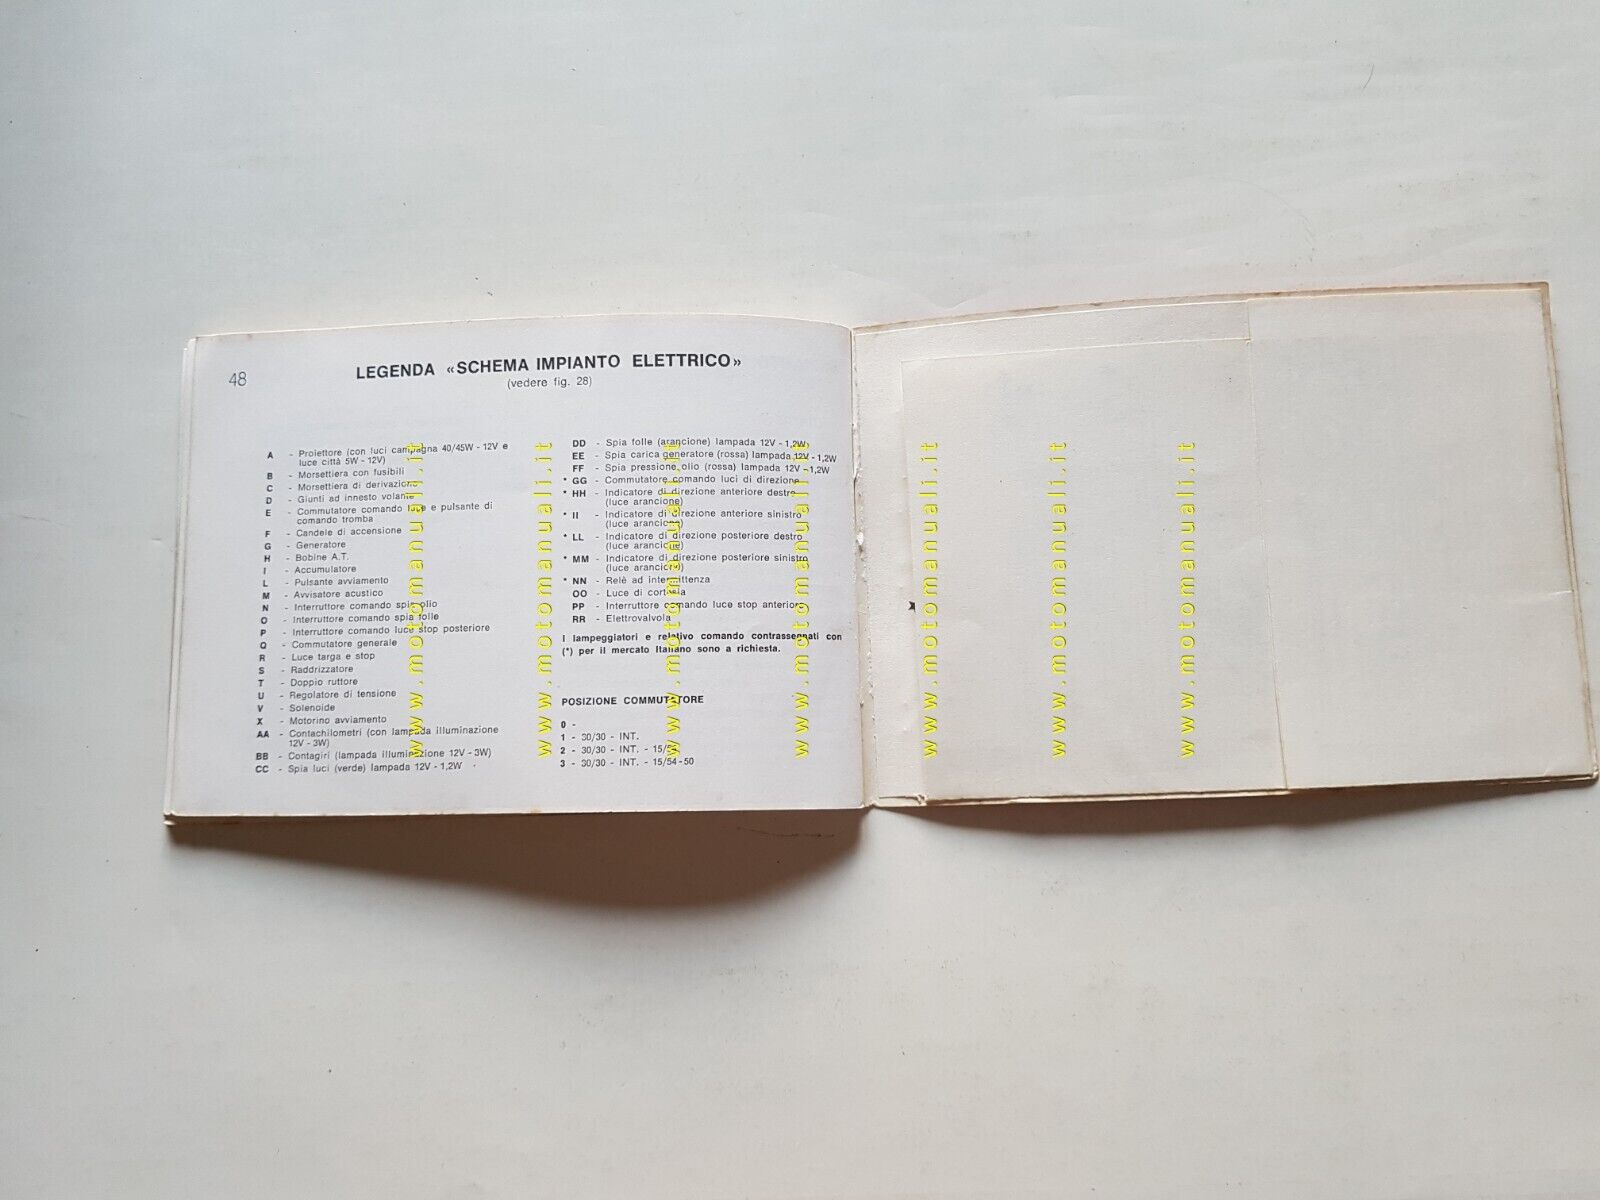 48
LEGENDA «SCHEMA IMPIANTO ELETTRICO»
(vedere fig. 28)
A - Proiettore (con luci campagna 40/45W - 12V e
luce città 5W - 12V)
B - Morsettiera con fusibili
C - Morsettiera di derivazione
D - Giunti ad innesto volante
E - Commutatore comando luce e pulsante di
comando tromba
F - Candele di accensione
G - Generatore
H - Bobine A.T.
I - Accumulatore
L - Pulsante avviamento
M - Avvisatore acustico
N - Interruttore comando spia olio
O - Interruttore comando spia folle
P - Interruttore comando luce stop posteriore
Q - Commutatore generale
R - Luce targa e stop
S - Raddrizzatore
T - Doppio ruttore
U - Regolatore di tensione
V - Solenoide
X - Motorino avviamento
AA - Contachilometri (con lampada illuminazione
12V - 3W)
BB - Contagiri (lampada illuminazione 12V - 3W)
CC - Spia luci (verde) lampada 12V - 1,2W
DD - Spia folle (arancione) lampada 12V - 1,2W
EE - Spia carica generatore (rossa) lampada 12V - 1,2W
FF - Spia pressione olio (rossa) lampada 12V - 1,2W
* GG - Commutatore comando luci di direzione
* HH - Indicatore di direzione anteriore destro
(luce arancione)
* II - Indicatore di direzione anteriore sinistro
(luce arancione)
* LL - Indicatore di direzione posteriore destro
(luce arancione)
* MM - Indicatore di direzione posteriore sinistro
(luce arancione)
* NN - Relè ad intermittenza
OO - Luce di cortesia
PP - Interruttore comando luce stop anteriore
RR - Elettrovalvola
I lampeggiatori e relativo comando contrassegnati con
(*) per il mercato Italiano sono a richiesta.
POSIZIONE COMMUTATORE
0 -
1 - 30/30 - INT.
2 - 30/30 - INT. - 15/54
3 - 30/30 - INT. - 15/54 - 50
www.motomanuali.it
www.motomanuali.it
www.motomanuali.it
www.motomanuali.it
www.motomanuali.it
www.motomanuali.it
www.motomanuali.it